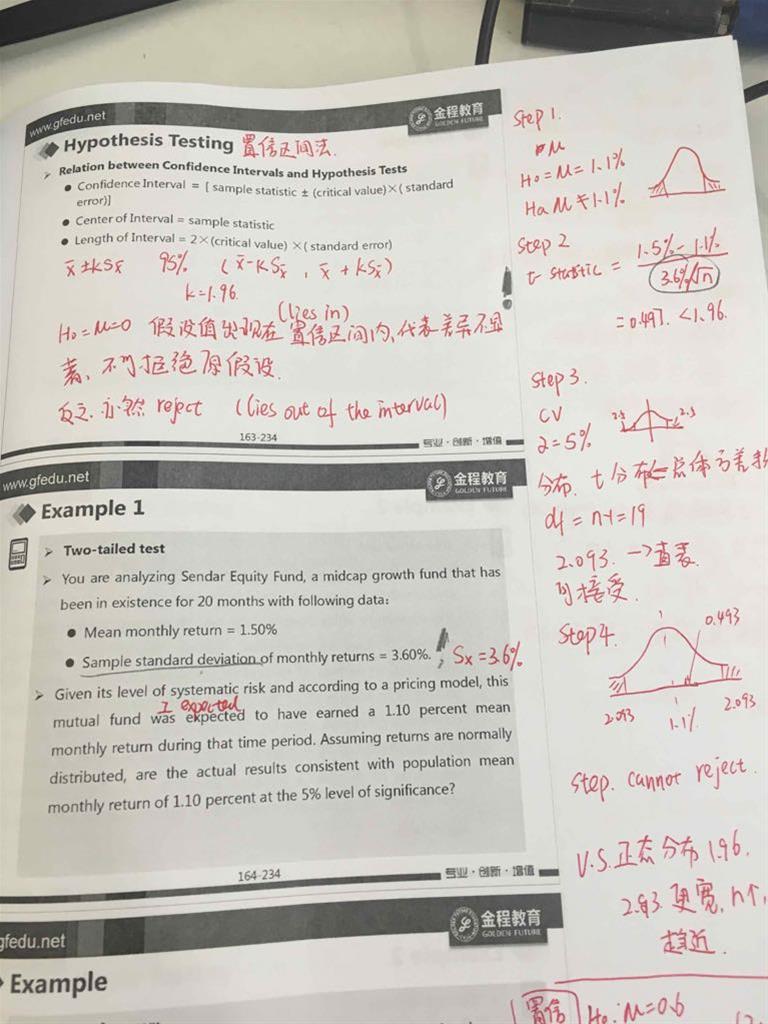 www.gfedu.net
金程教育
GOLDEN FUTURE
Hypothesis Testing 置信区间法.
Relation between Confidence Intervals and Hypothesis Tests
Confidence Interval = [ sample statistic ± (critical value)×( standard
error)]
Center of Interval = sample statistic
Length of Interval = 2×(critical value) ×( standard error)
x̄ ± kSx̄ 95% (x̄-kSx̄, x̄+kSx̄)
k=1.96.
(lies in)
H₀=μ=0 假设值出现在 置信区间内,代表差异不显
著,不可拒绝原假设.
反之,亦然 reject (lies out of the interval)
163-234
专业·创新·增值
www.gfedu.net
金程教育
GOLDEN FUTURE
Example 1
Two-tailed test
You are analyzing Sendar Equity Fund, a midcap growth fund that has
been in existence for 20 months with following data:
Mean monthly return = 1.50%
Sample standard deviation of monthly returns = 3.60%. Sx=3.6%
Given its level of systematic risk and according to a pricing model, this
I expected
mutual fund was expected to have earned a 1.10 percent mean
monthly return during that time period. Assuming returns are normally
distributed, are the actual results consistent with population mean
monthly return of 1.10 percent at the 5% level of significance?
164-234
专业·创新·增值
gfedu.net
金程教育
GOLDEN FUTURE
Example
Step 1.
μ
H₀=μ=1.1%
Ha μ≠1.1%
Step 2
t-statistic = 1.5%-1.1%
3.6%/√n
=0.497. <1.96.
Step 3.
CV
2.5 2.5
α=5%
分布. t分布 总体方差
df=n-1=19
2.093. →查表.
可接受.
Step 4.
0.493
2.093 1.1% 2.093
Step. cannot reject.
V.S.正态分布1.96.
2.93.更宽,n↑,
趋近.
置信 H₀:μ=0.6